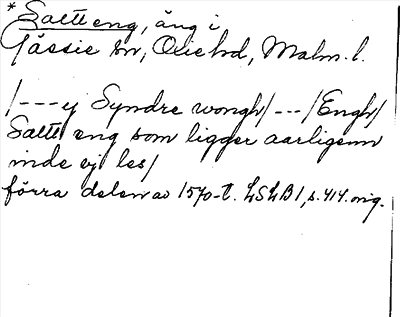 * Saltt eng, äng i
Gässie sn, Oxie hd, Malm. l.
/---ij Syndre wongh/---/Engh/
Saltt eng som ligger aarligenn
inde vj les/
förra delen av 1570-t. LSLB 1, s. 414. orig.